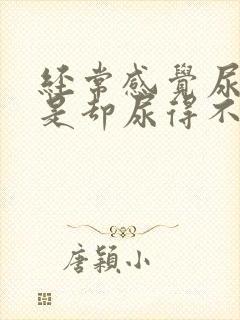 經常感覺尿
是却尿得不
唐穎小